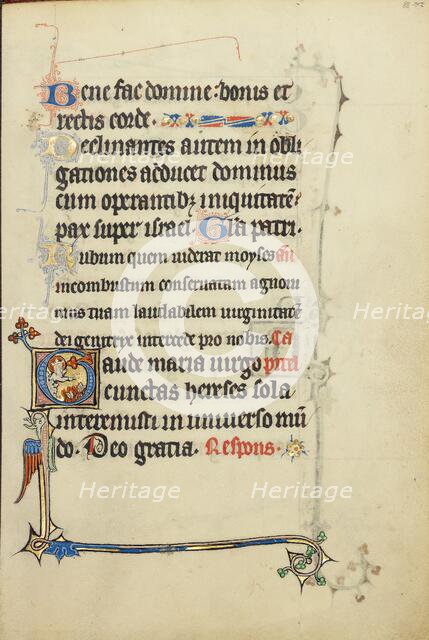 Bene fac domine: bonis et
rectis corde.
Declinantes autem in obli
gationes adducet dominus
cum operantibꝫ iniquitatē
pax super israel. Gl̄a patri.
Rubrum quem viderat moyses añ
incombustum conseruatam agnoui
mus tuam laudabilem uirginitatē
dei genitrix intercede pro nobis. Ca
Gaude maria uirgo pitel
cunctas hereses sola
interemisti in vniuerso mū
do. Deo gratia. Respons.
Heritage
Heritage
Heritage
Heritage
Heritage
Heritage
Heritage